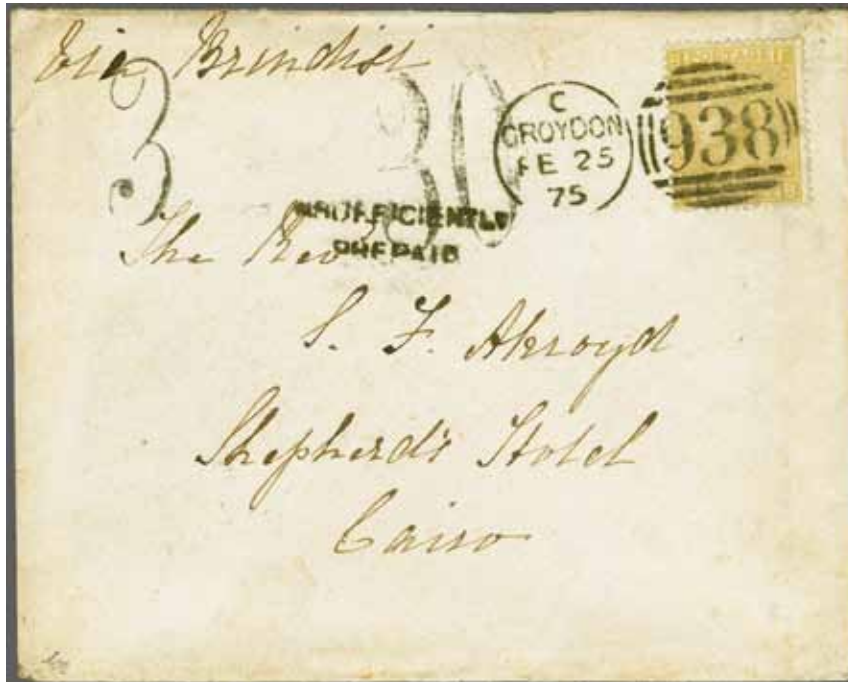 Via Brindisi
3 30
C
CROYDON
FE 25
75
938
POSTAGE
INSUFFICIENTLY
PREPAID
The Revd
S. F. Akroyd
Shepherd's Hotel
Cairo